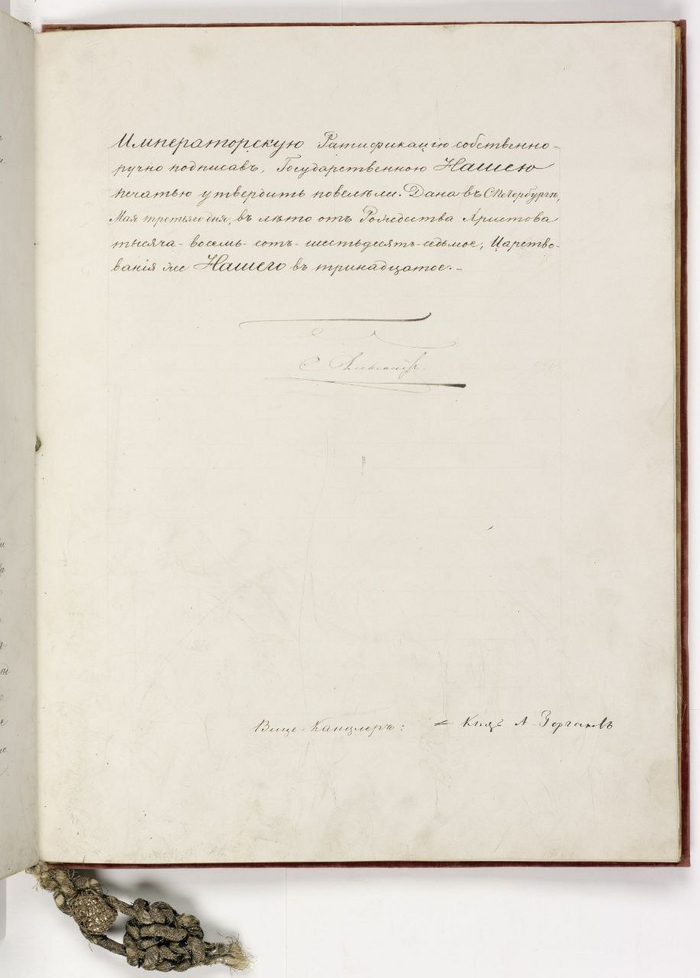 Императорскую Ратификацію собственно-
ручно подписавъ, Государственною Нашею
печатью утвердить повелѣли. Дана въ С.Петербургѣ,
Мая третьяго дня, въ лѣто отъ Рождества Христова
тысяча-восемь-сотъ-шестьдесятъ-седьмое, Царство-
ванія же Нашего въ тринадцатое.
Александръ
Вице-Канцлеръ: Князь А. Горчаковъ